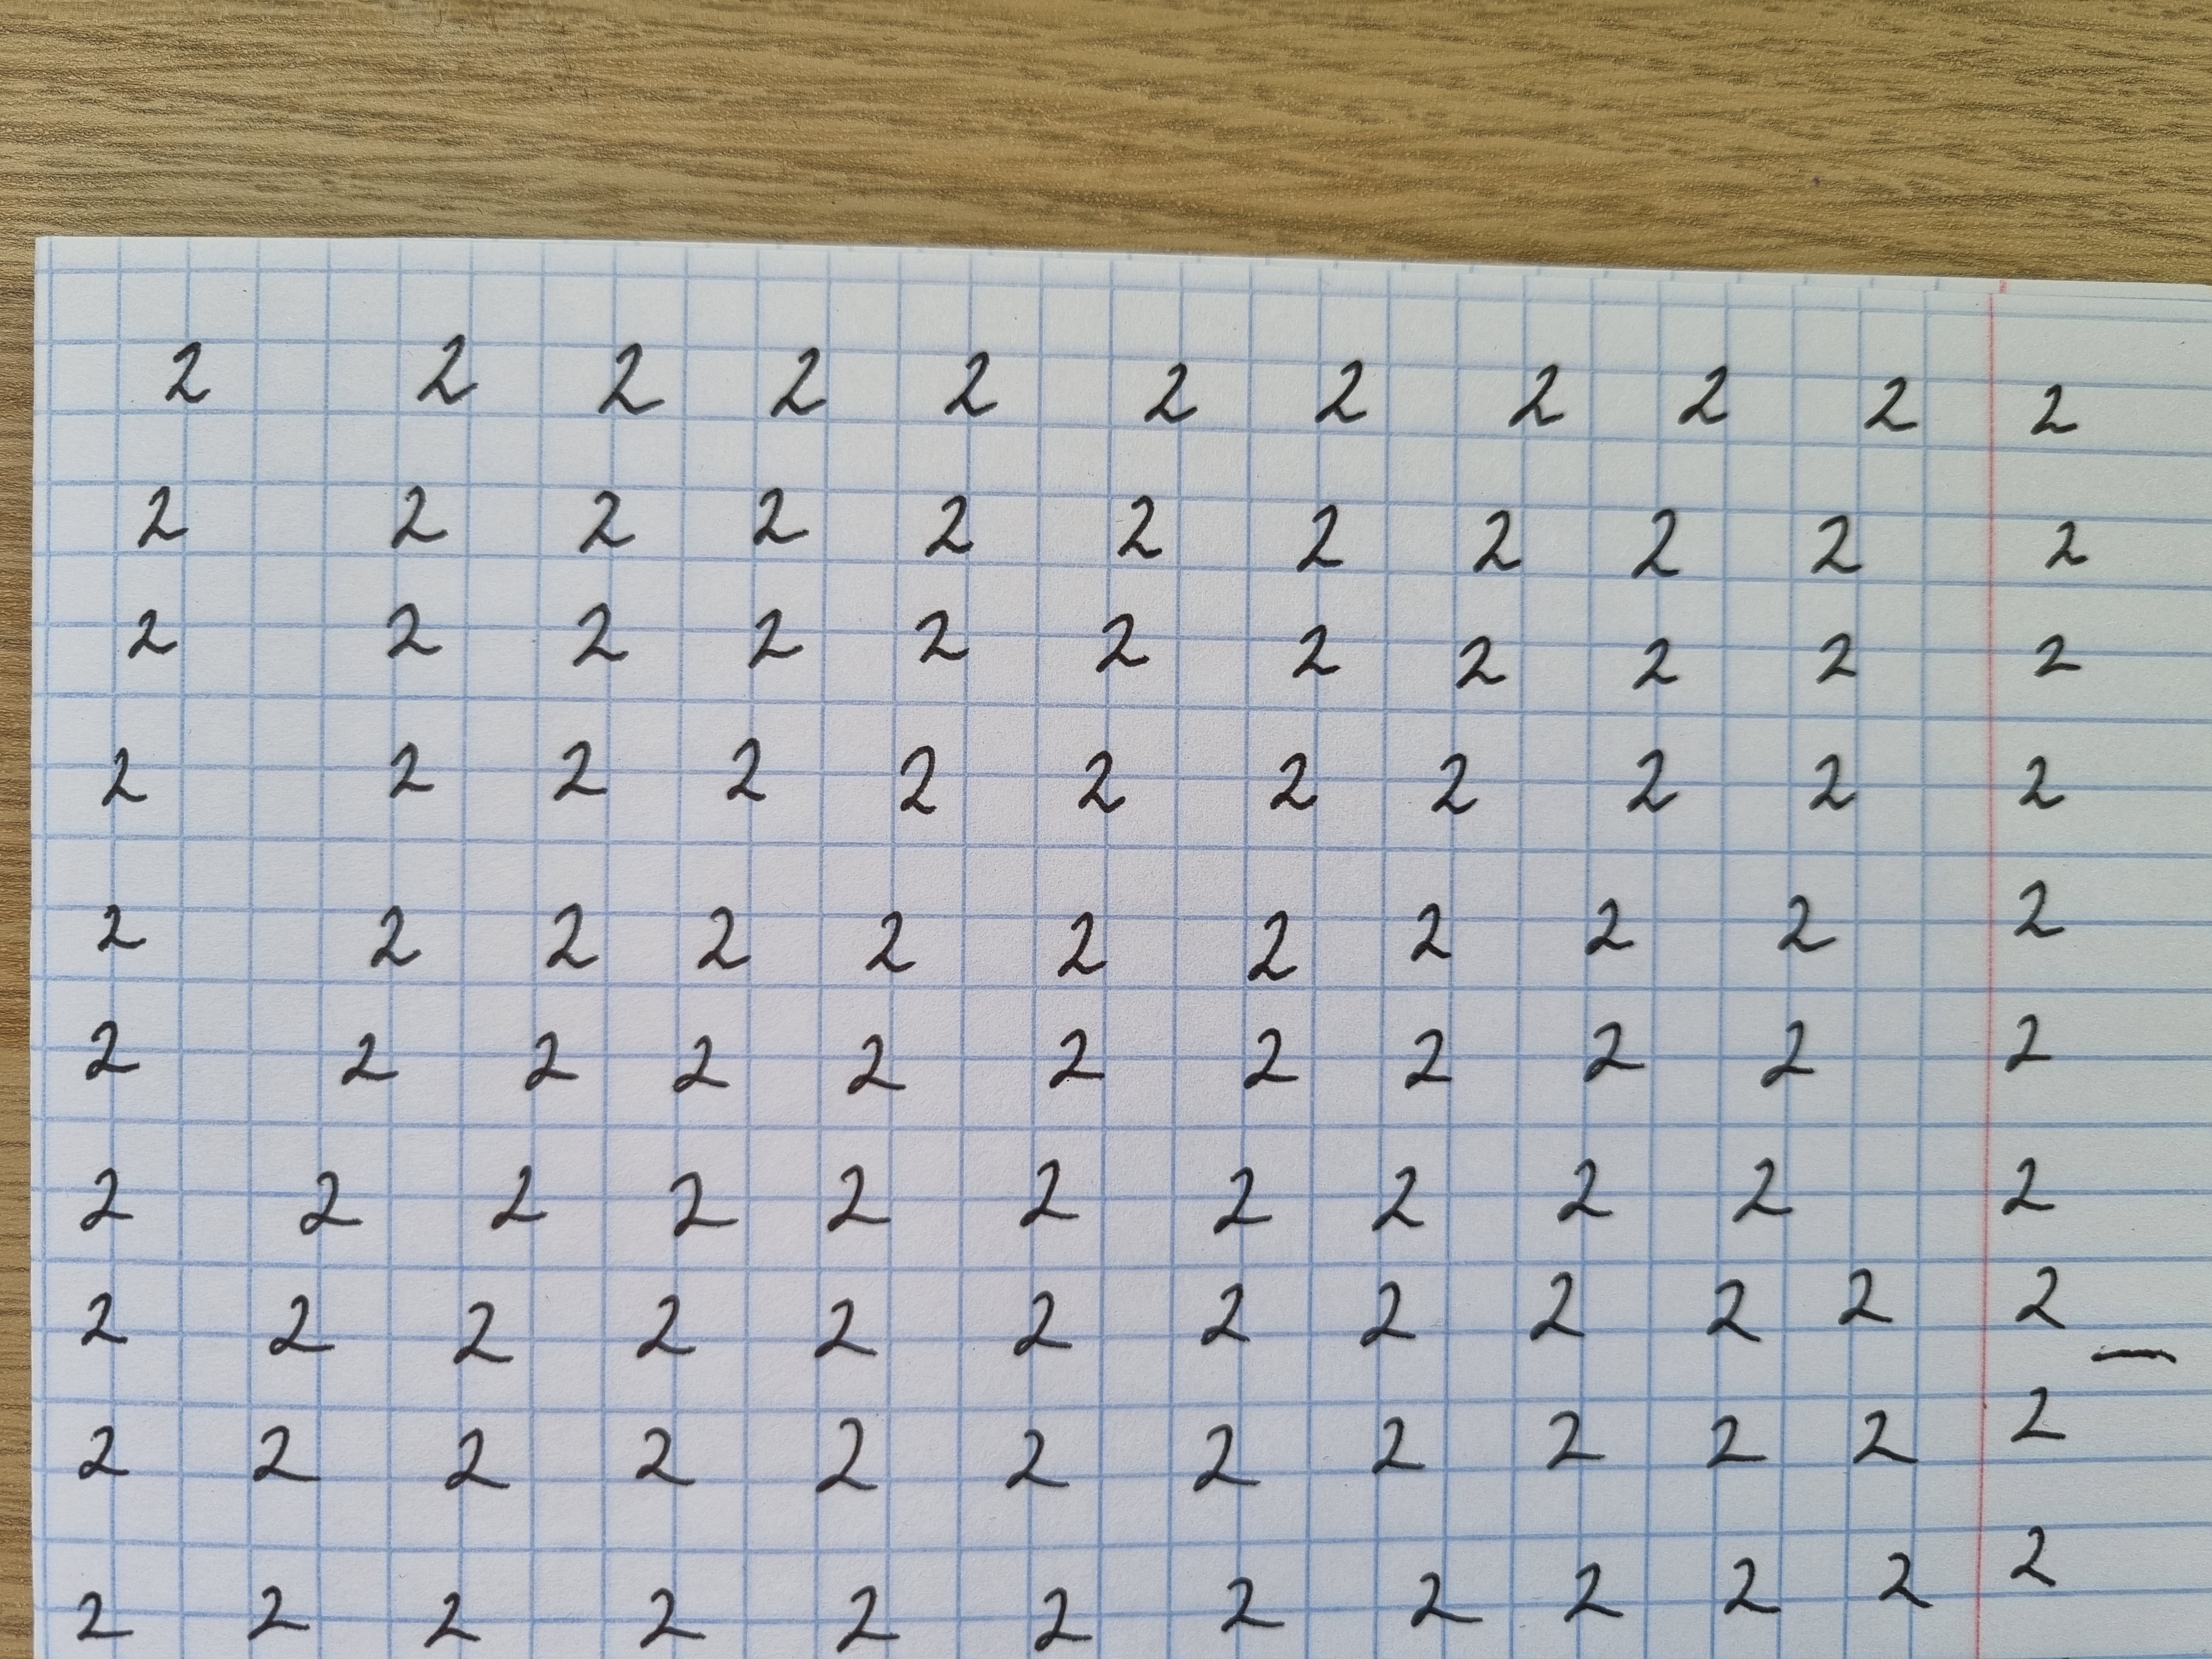 2 2 2 2 2 2 2 2 2 2 2
2 2 2 2 2 2 2 2 2 2 2
2 2 2 2 2 2 2 2 2 2 2
2 2 2 2 2 2 2 2 2 2 2
2 2 2 2 2 2 2 2 2 2 2
2 2 2 2 2 2 2 2 2 2 2
2 2 2 2 2 2 2 2 2 2 2
2 2 2 2 2 2 2 2 2 2 2 2 _
2 2 2 2 2 2 2 2 2 2 2 2
2 2 2 2 2 2 2 2 2 2 2 2